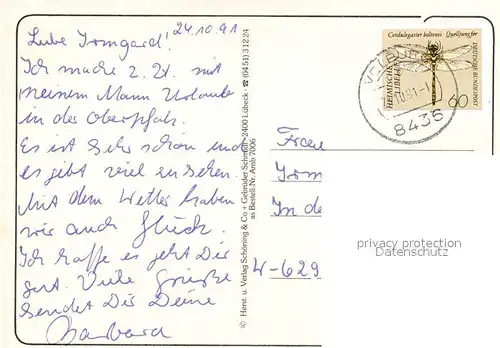 24.10.91
Liebe Irmgard!
Ich mache z. Zt. mit
meinem Mann Urlaub
in der Oberpfalz.
Es ist sehr schön und
es gibt viel zu sehen.
Mit dem Wetter haben
wir auch Glück.
Ich hoffe es geht Dir
gut. Viele Grüße
sendet Dir Deine
Barbara
© Herst. u. Verlag Schöning & Co + Gebrüder Schmidt · 2400 Lübeck · ☎ (04 51) 3 12 24
as Bestell-Nr. Amb 7006
Cordulegaster boltoni · Quelljungfer
HEIMISCHE
LIBELLEN
DEUTSCHE BUNDESPOST
60
8435
Frau
Irm
In de
W-629
privacy protection
Datenschutz